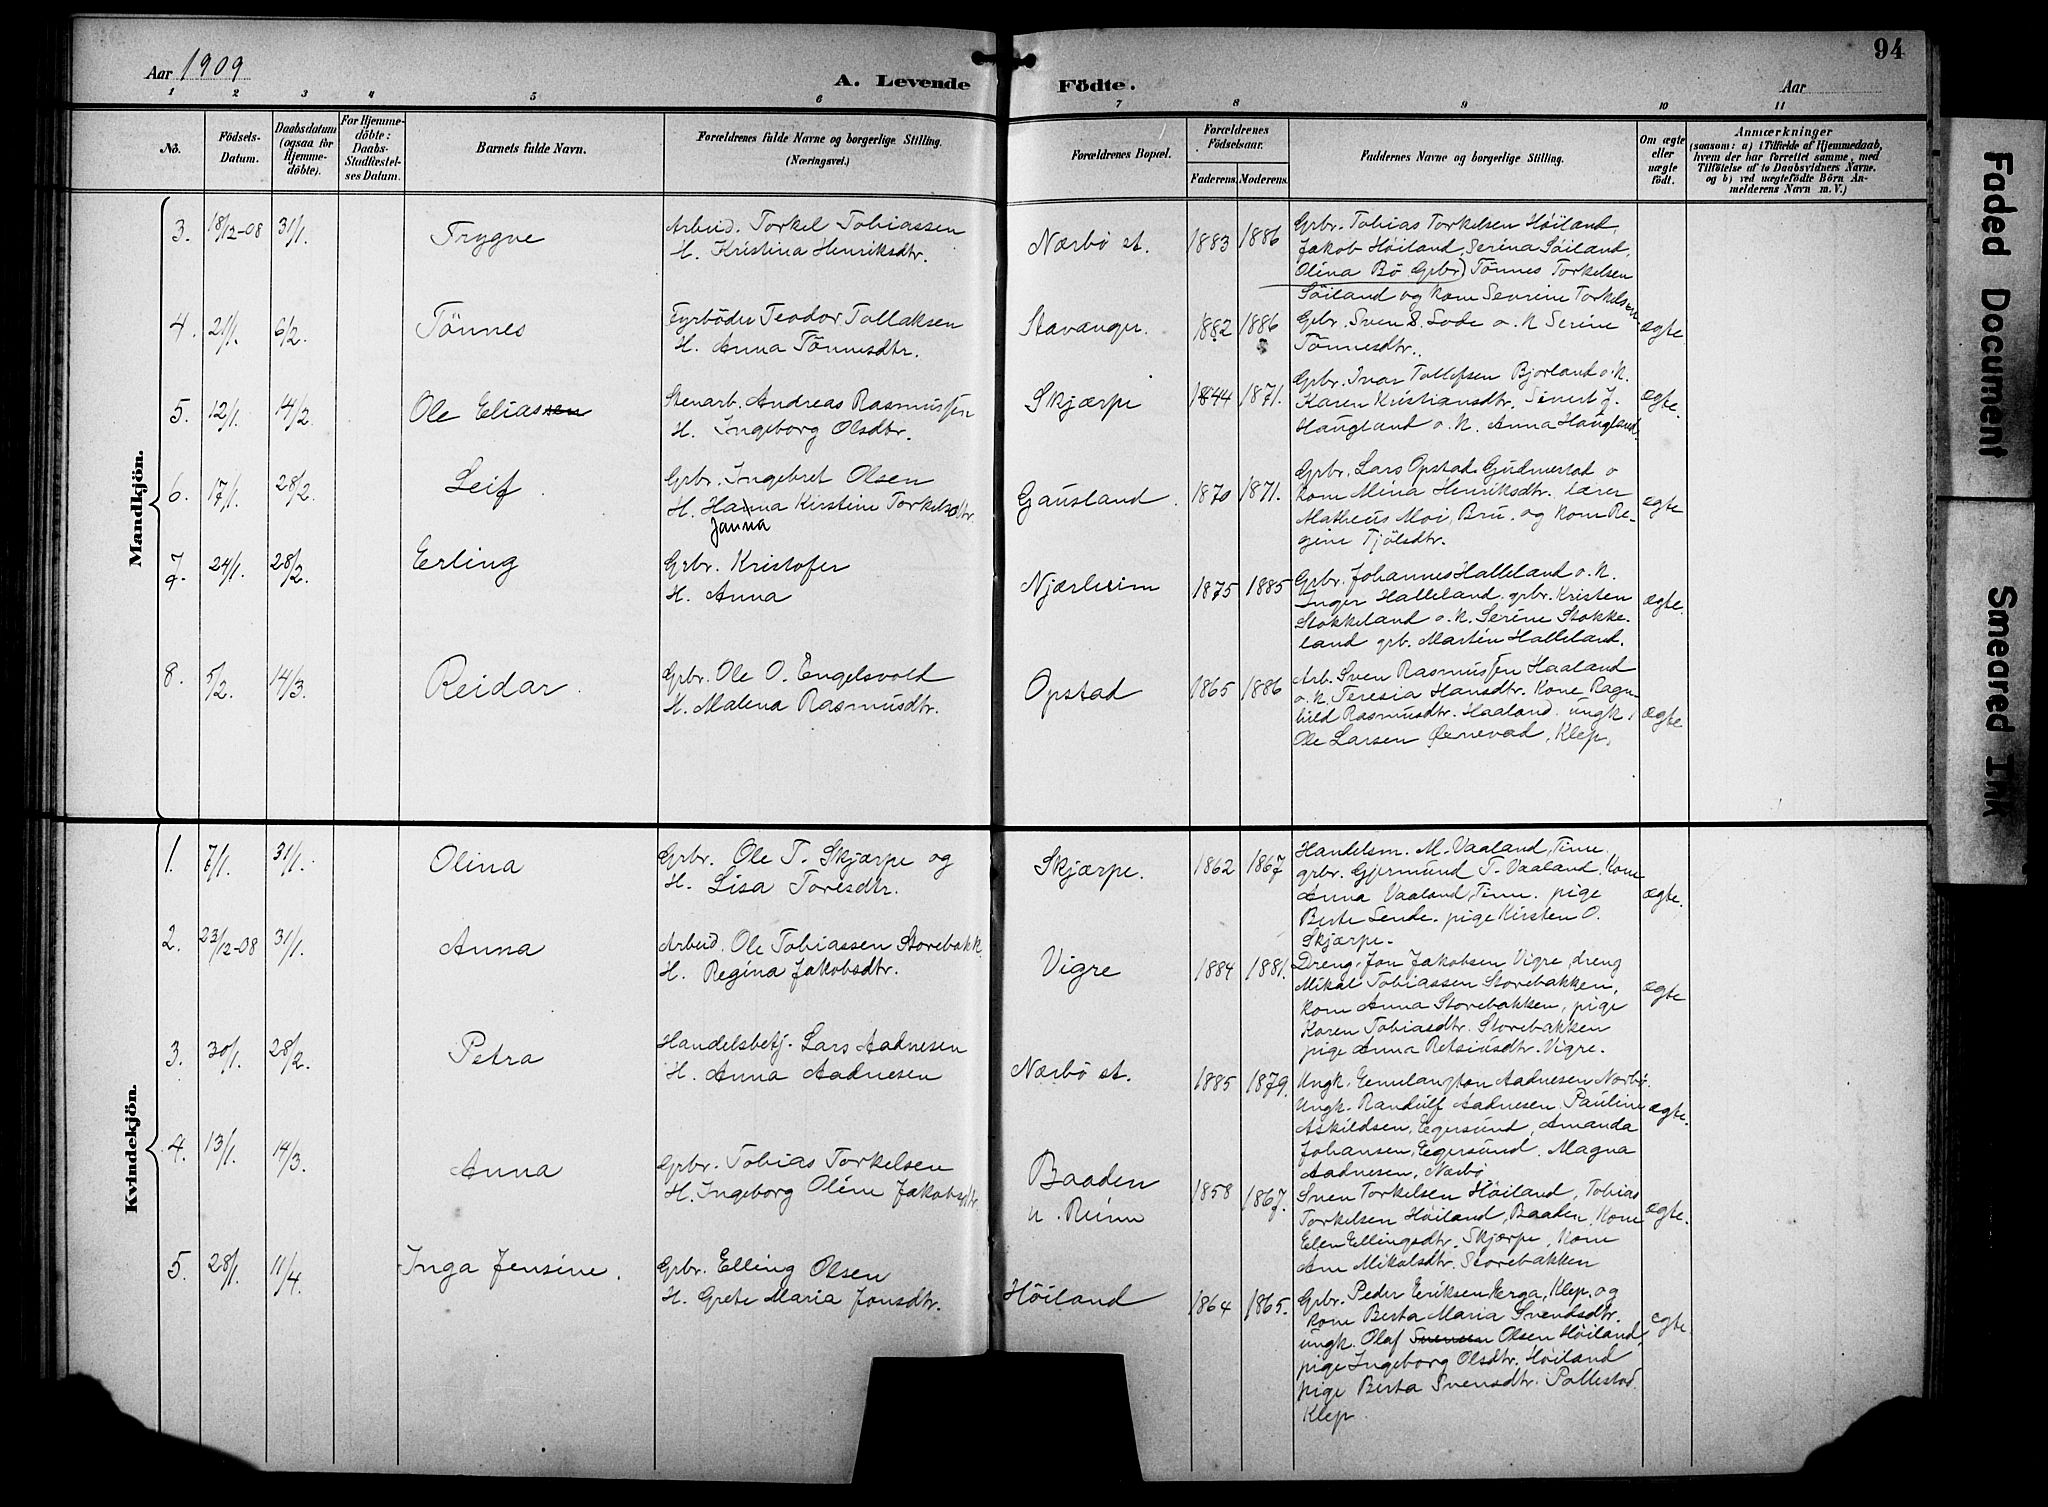 Aar 1909
A. Levende Födte.
94
Aar
1 2 3 4 5 6 7 8 9 10 11
No.
Födsels-Datum.
Daabsdatum (ogsaa for Hjemmedöbte).
For Hjemmedöbte: Daabs-Stadfæstelses Datum.
Barnets fulde Navn.
Forældrenes fulde Navne og borgerlige Stilling. (Næringsvei.)
Forældrenes Bopæl.
Forældrenes Födselsaar.
Faderens. Moderens.
Faddernes Navne og borgerlige Stilling.
Om ægte eller uægte født.
Anmærkninger
(saasom: a) i Tilfælde af Hjemmedaab, hvem der har forrettet samme, med Tilföielse af to Daabsvidners Navne. og b) ved uægtefödte Börn Anmelderens Navn m. V.)
Mandkjön.
3. 18/12-08 31/1. Trygve
Arbeid. Torkel Tobiassen
H. Kristina Henriksdtr.
Nærbö st. 1883 1886
Grbr. Tobias Torkelsen Höiland,
Jakob Höiland, Serina Söiland,
Olina Bö Grbr) Tönnes Torkelsen
Söiland og kone Severine Torkelsen
4. 21/1. 6/2. Tönnes
Fyrböder Teodor Tollaksen
H. Anna Tönnesdtr.
Stavanger. 1882 1886
Grbr. Sven S. Lode o. k Serine
Tönnesdtr.
ægte
5. 12/1. 14/2. Ole Eliassen
Stenarb. Andreas Rasmussen
H. Ingeborg Olsdtr.
Skjærpe 1844 1871.
Grbr. Ivar Tollefsen Bjorland o. k.
Karen Kristiansdtr. Sivert J.
Haugland o. k. Anna Haugland.
ægte.
6. 17/1. 28/2. Leif.
Grbr. Ingebret Olsen
H. Hanna Kirstine Torkelsdtr.
Janna
Gausland. 1870 1871.
Grbr. Lars Opstad Gudmestad o
kone Mina Henriksdtr. lærer
Matheus Moi, Bru. og kone Re-
gine Tjölsdtr.
ægte
7. 9. 24/1. 28/2. Erling
Grbr. Kristofer
H. Anna
Njærheim 1875 1885
Grbr. Johannes Halleland o. k.
Inger Halleland. grbr. Kristen
Stokkeland o. k. Serine Stokke-
land grb. Martin Halleland.
ægte.
8. 5/2. 14/3. Reidar.
Grbr. Ole O. Engelsvold
H. Malena Rasmusdtr.
Opstad 1865 1886
Arb. Sven Rasmussen Haaland
o. k. Teresia Hansdtr. Kone Ragn-
hild Rasmusdtr. Haaland. ungk.
Ole Larsen Ørnevad, Klep.
ægte
Kvindekjön.
1. 7/1. 31/1. Olina
Grbr. Ole T. Skjærpe og
H. Lisa Toresdtr.
Skjærpe. 1862 1867
Handelsm. M. Vaaland, Time.
grbr. Gjermund T. Vaaland, Kone
Anna Vaaland, Time. pige
Berte Lende. pige Kirsten O.
Skjærpe.
ægte.
2. 23/12-08 31/1. Anna
Arbeid. Ole Tobiassen Storebakk.
H. Regina Jakobsdtr.
Vigre 1884 1881.
Dreng. Jon Jakobsen Vigre, dreng
Mikal Tobiassen Storebakken,
kone Anna Storebakken, pige
Karen Tobiasdtr. Storebakken
pige Anna Retsiusdtr. Vigre.
ægte
3. 30/1. 28/2. Petra
Handelsbetj. Lars Aadnesen
H. Anna Aadnesen
Nærbö st. 1885 1879.
Ungk. Aadnesen Nærbö.
Ungk. Randulf Aadnesen, Pauline
Askildsen, Egersund, Amanda
Johansen, Egersund, Magna
Aadnesen, Nærbö
ægte.
4. 13/1. 14/3. Anna
Grbr. Tobias Torkelsen
H. Ingeborg Oline Jakobsdtr.
Baaden
u. Reime
1858 1867.
Sven Torkelsen Höiland, Tobias
Torkelsen Höiland, Baaden, Kone
Elen Ellingsdtr. Skjærpe, kone
Ane Mikalsdtr. Storebakken
ægte.
5. 28/1. 11/4. Inga Jensine.
Grbr. Elling Olsen
H. Grete Maria Jonsdtr.
Höiland 1864 1865.
Grbr. Peder Eriksen Erga, Klep, og
kone Berta Maria Svendsdtr.
ungk. Olaf Svensen Olsen Höiland,
pige Ingeborg Olsdtr. Höiland
pige Berta Svensdtr. Pollestad.
Klep.
egte
Faded Document
Smeared Ink